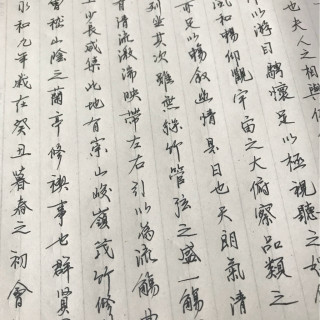 永和九年歲在癸丑暮春之初會
會稽山陰之蘭亭修禊事也群賢
少長咸集此地有崇山峻嶺茂竹修
有清流激湍映帶左右引以為流觴曲
列坐其次雖無絲竹管弦之盛一觴
亦足以暢敘幽情是日也天朗氣清
風和暢仰觀宇宙之大俯察品類之
所以游目騁懷足以極視聽之娛
也夫人之相與